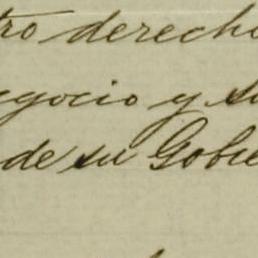 tro derecho
egocio y su
de su Gobie